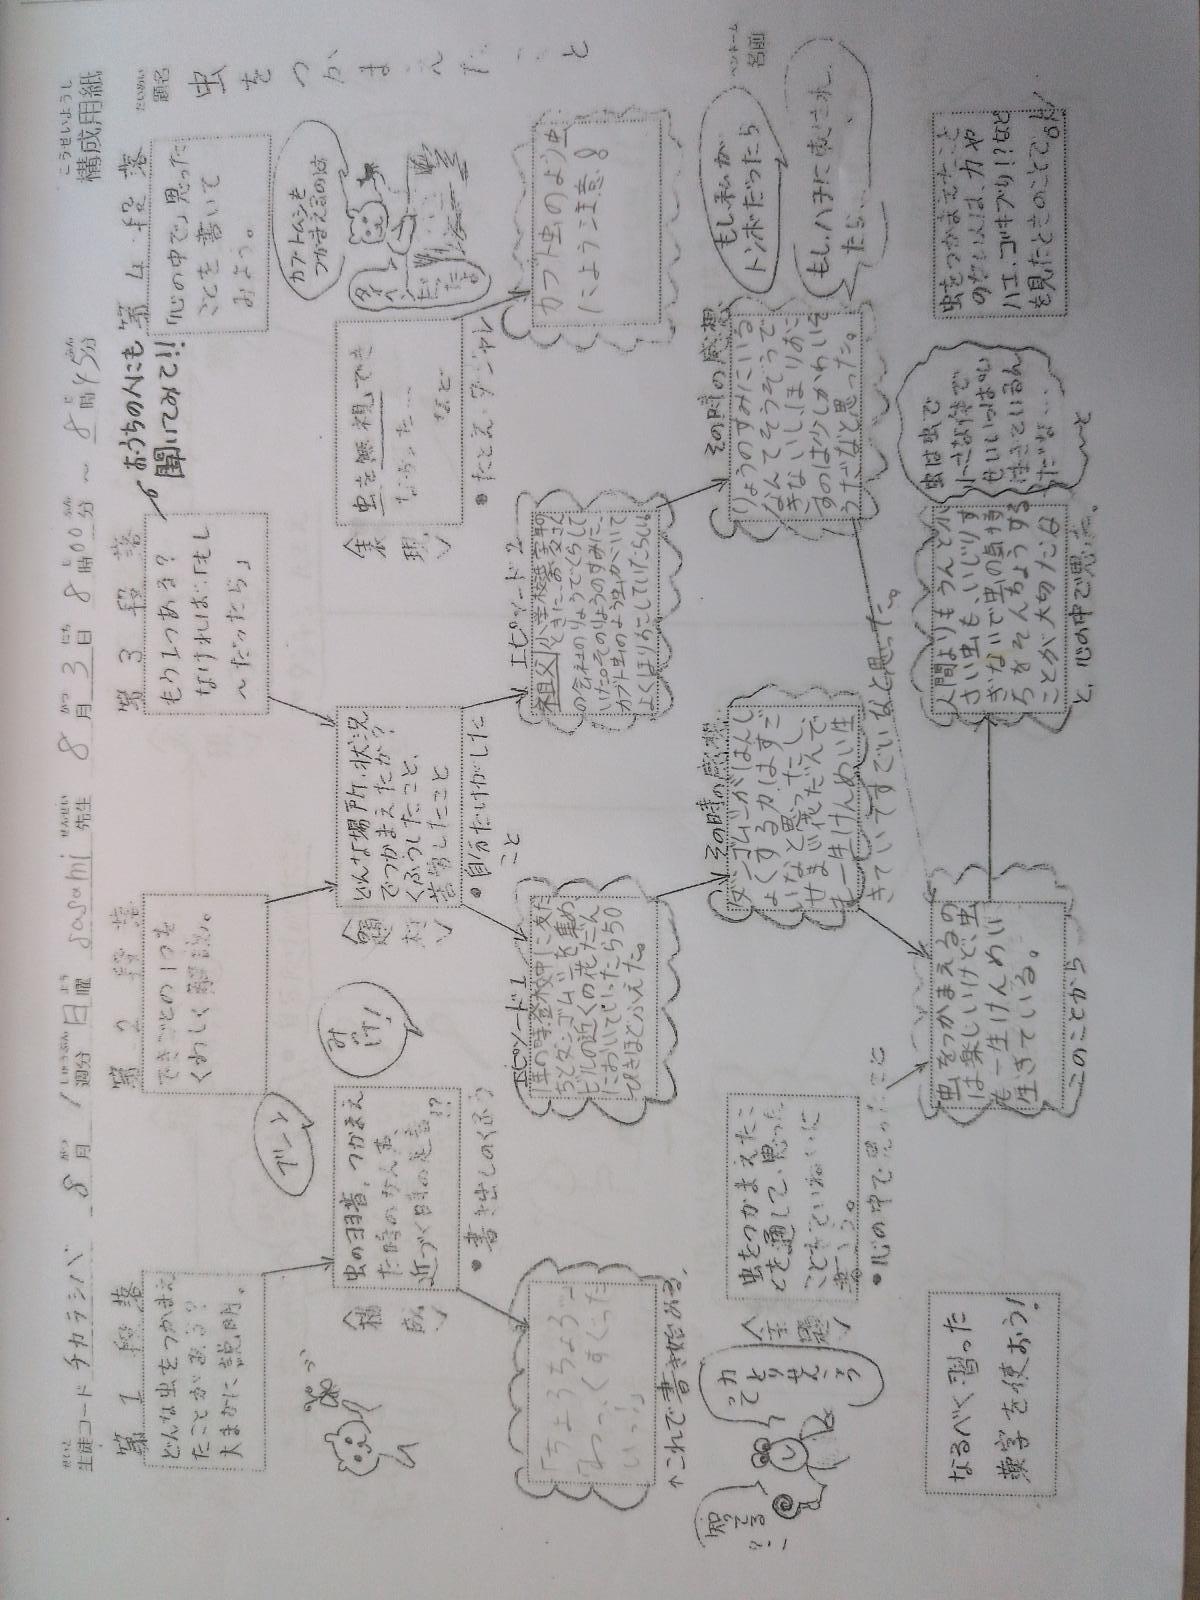 構成用紙
生徒コード チカラシバ 8月 1週分 日曜 sasami 先生 8月3日 8時00分 ~ 8時45分
題名 虫をつかまえたこと
ペンネーム
名前
第1段落
どんな虫をつかまえ
たことがある?
大まかに説明。
第2段落
できごとの1つを
くわしく解説。
第3段落
もう1つある?
なければ…「もし
~だったら」
おうちの人にも
聞いてみて!!
第4段落
「心の中で」思った
ことを書いて
みよう。
構成
虫の羽音、つかまえ
た時のなん声、
近づく時の足音!?
・書き出しのくふう
題材
どんな場所・状況
でつかまえたか?
くふうしたこと、
苦労したこと
・自分だけがした
こと
表現
虫を無視でき
なかった…
など
・たとえ・ダジャレ
カブトムシを
つかまえるのは
「ちょうちょみ
いっ!」
↑これで書き始める。
エピソード1
1年の時、登校中に友だ
ちとダンゴムシを集め、
ビルの近くの花だん
においていったら50
ぴきほどふえた。
エピソード2
祖父 小学校三年
カブト虫のよう虫
によう注意!
もし私が
トンボだったら
もし、ハチに
たら…
主題
虫をつかまえたこ
とを通して、思った
ことをていねいに
書こう。
・心の中で思ったこと
その時の感想
ダンゴムシがはんし
ょくする力はすご
いなと思ったし、
せまい花だんで
も一生けんめい生
きていてすごいなと思った。
その時の感想
りょうのすみにいる
なんてそうぞうで
きないし、ほりおこ
すのは少しかわいそ
うだなと思った。
なるべく習った
漢字を使おう!
虫をつかまえるの
は楽しいけど、虫
も一生けんめい
生きている。
このことから
人間よりもうんと小
さい虫も、いじりす
ぎないで虫の気持
ちをそんちょうする
ことが大切だな
と、心の中で思った。
虫は虫で
小さな体で
せいいっぱい
生きているん
だな…
と
虫をつかまえたこと
のない人は、カや
ハエ、ゴキブリ!?など
を見たときのことでOK!